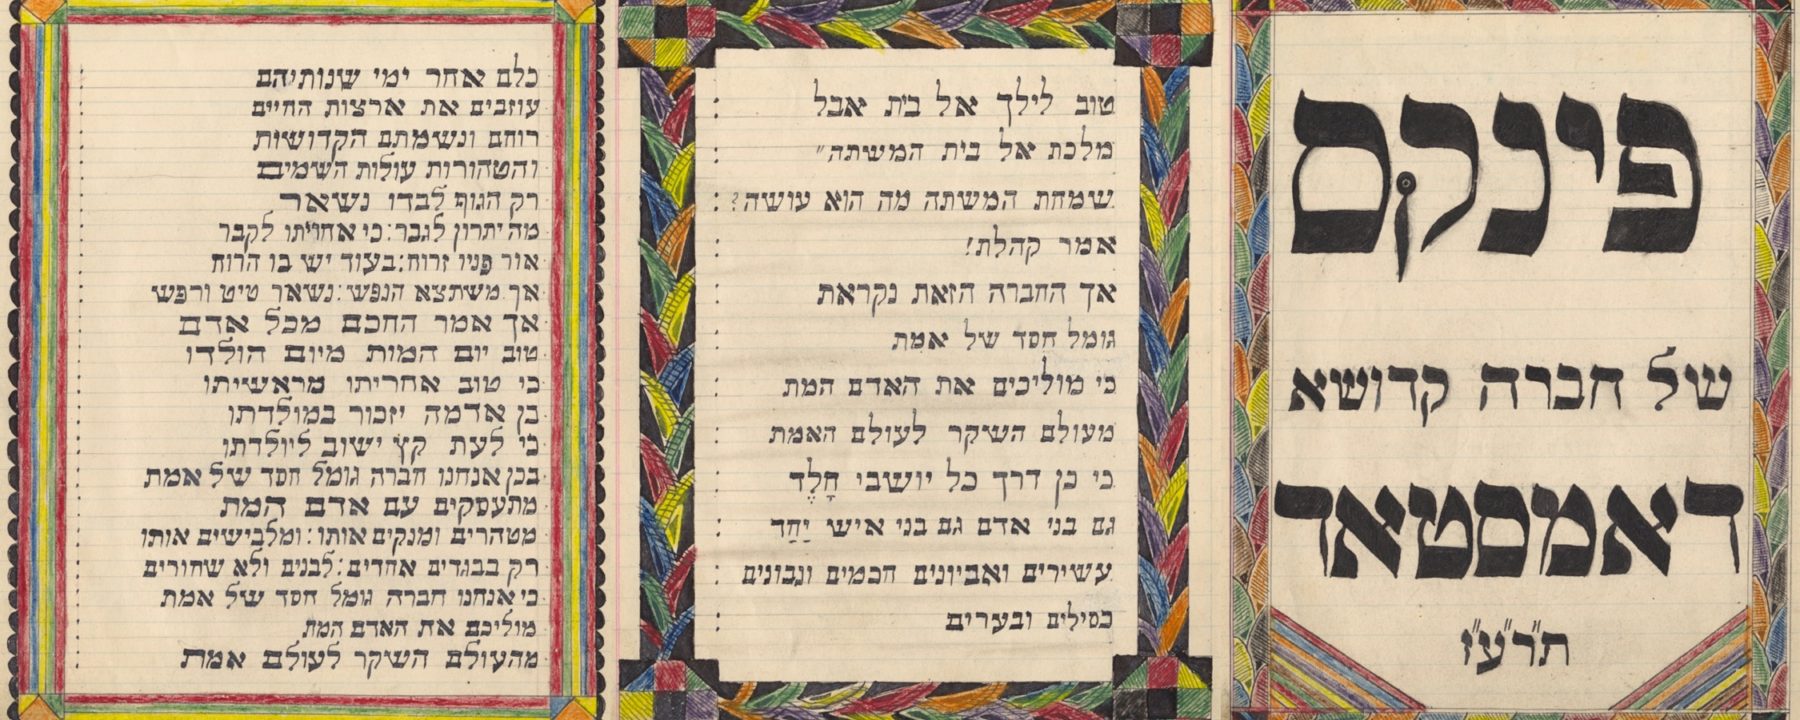 פינקס
של חברה קדושא
דאמסטאד
תרע"ז
טוב לילך אל בית אבל :
מלכת אל בית המשתה" :
שמחת המשתה מה הוא עושה? :
אמר קהלת! :
אך החברה הזאת נקראת :
גומל חסד של אמת :
כי מוליכים את האדם המת :
מעולם השקר לעולם האמת :
כי כן דרך כל יושבי חָלֶד :
גם בני אדם גם בני איש יַחַד :
עשירים ואביונים חכמים ונבונים :
כסילים ובערים :
כלם אחר ימי שנותיהם :
עוזבים את ארצות החיים :
רוחם ונשמתם הקדושות :
והטהורות עולות השמים :
רק הגוף לבדו נשאר :
מה יתרון לגבר: כי אחריתו לקבר :
אור פניו זרוח: בעוד יש בו הרוח :
אך משתצא הנפש: נשאר טיט ורפש :
אך אמר החכם מכל אדם :
טוב יום המות מיום הולדו :
כי טוב אחריתו מראשיתו :
בן אדמה יזכור במולדתו :
כי לעת קץ ישוב ליולדתו :
בכן אנחנו חברה גומל חסד של אמת :
מתעסקים עם אדם המת :
מטהרים ומנקים אותו: ומלבישים אותו :
רק בבגדים אחדים: לבנים ולא שחורים :
כי אנחנו חברה גומל חסד של אמת :
מוליכם את האדם המת :
מהעולם השקר לעולם אמת :